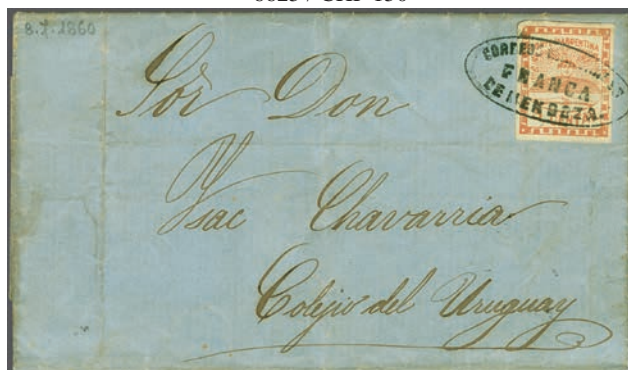 8.7.1860
ARGENTINA
CORREOS
FRANCA
DE MENDOZA.
Sor Don
Ysac Chavarria
Colejio del Uruguay